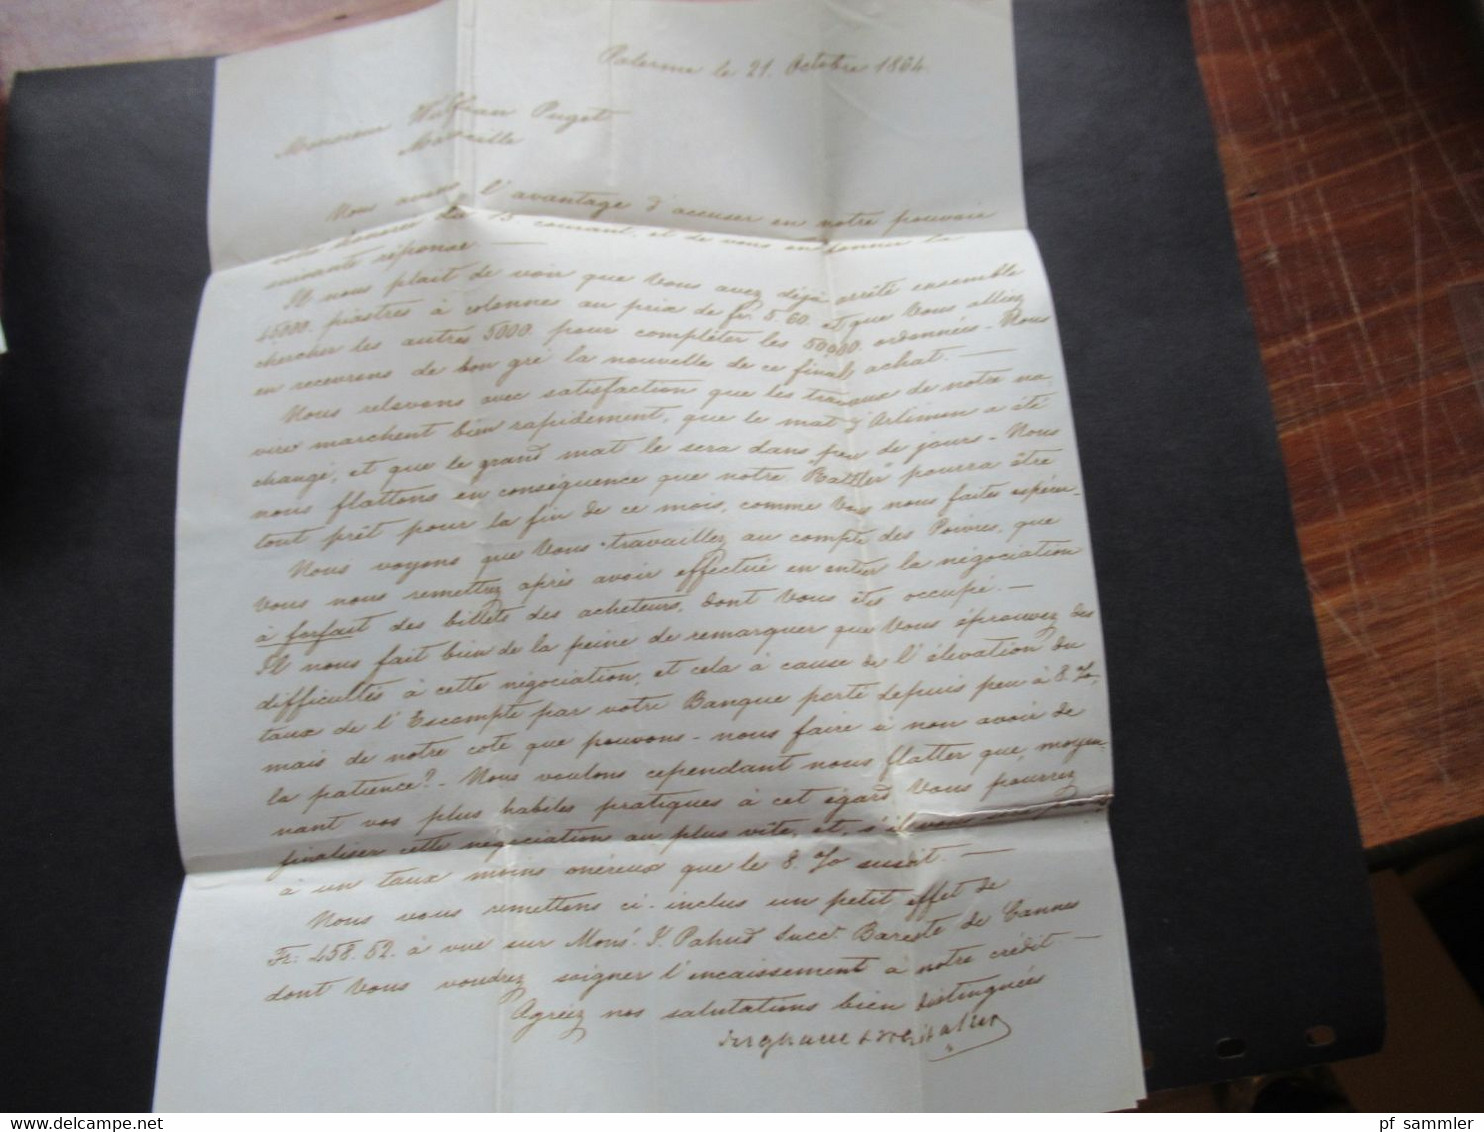 Palerme le 21. Octobre 1864.
Monsieur Puget
Marseille
Nous avons l'avantage d'accuser en notre pouvoir
votre honorée du 15 courant, et de vous en donner la
suivante réponse —
Il nous plait de voir que Vous avez déjà arrêté ensemble
45000. piastres à colonnes au prix de fr. 5 60. et que Vous alliez
chercher les autres 5000. pour compléter les 50000. ordonnées - Nous
en recevrons de bon gré la nouvelle de ce final achat. —
Nous relevons avec satisfaction que les travaux de notre na-
vire marchent bien rapidement, que le mat d'Artimon a été
changé, et que le grand mat le sera dans peu de jours - Nous
nous flattons en conséquence que notre "Rattler" pourra être
tout prêt pour la fin de ce mois, comme Vous nous faites espérer -
Nous voyons que Vous travaillez au compte des Poivres, que
Vous nous remettrez après avoir effectué en entier la négociation
à forfait des billets des acheteurs, dont Vous êtes occupé. —
Il nous fait bien de la peine de remarquer que Vous éprouvez des
difficultés à cette négociation, et cela à cause de l'élevation du
taux de l'Escompte par votre Banque porté depuis peu à 8.%,
mais de notre coté que pouvons-nous faire à non avoir de
la patience? - Nous voulons cependant nous flatter que, moyen-
nant vos plus habiles pratiques à cet égard Vous pourrez
finaliser cette négociation au plus vite, et, s'il
à un taux moins onéreux que le 8.% susdit. —
Nous vous remettons ci-inclus un petit effet de
Fr: 458.52. à vue sur Monsr. Y. Pahud Succr. Bareste de Cannes
dont Vous voudrez soigner l'encaissement à notre crédit —
Agréez nos salutations bien distinguées
Ingham &
pf sammler